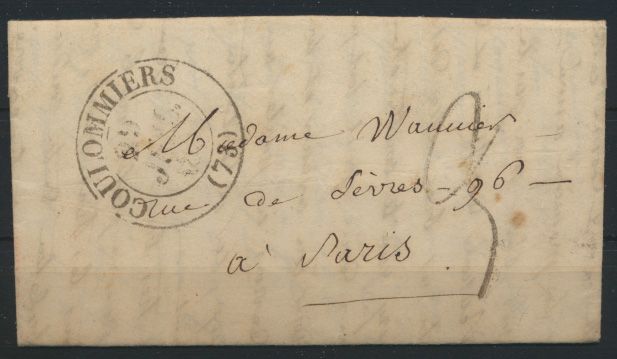 COULOMMIERS (73)
à Madame Wauvier
rue de Sèvres - 96 -
à Paris.
3